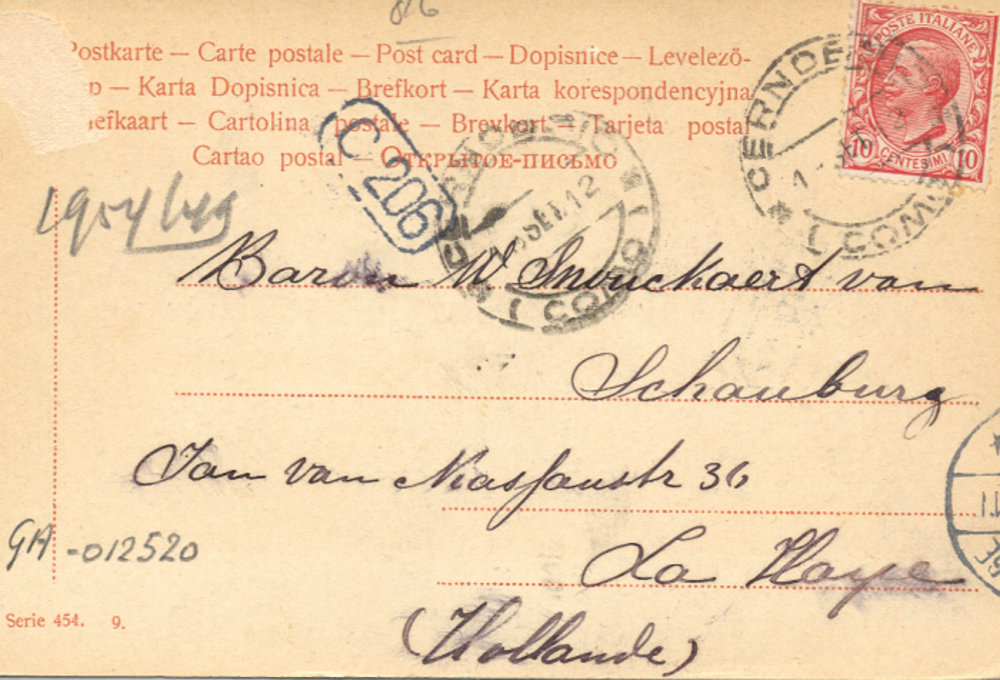 816
Postkarte — Carte postale — Post card — Dopisnice — Levelező-
p — Karta Dopisnica — Brefkort — Karta korespondencyjna
iefkaart — Cartolina postale — Brevkort — Tarjeta postal
Cartao postal — Открытое-письмо
POSTE ITALIANE
10 CENTESIMI 10
C 206
SET. 12
(COMO)
CERNOB
(COMO)
1954/649
Baron W Snouckaert van
Schauburg
Jan van Nassaustr 36
La Haye
(Hollande)
GA -012520
Serie 454. 9.